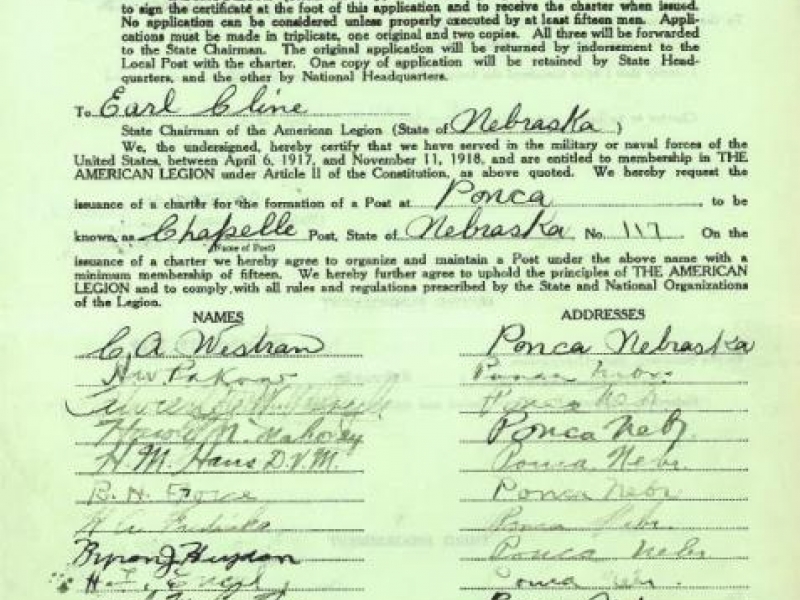 to sign the certificate at the foot of this application and to receive the charter when issued.
No application can be considered unless properly executed by at least fifteen men. Appli-
cations must be made in triplicate, one original and two copies. All three will be forwarded
to the State Chairman. The original application will be returned by indorsement to the
Local Post with the charter. One copy of application will be retained by State Head-
quarters, and the other by National Headquarters.
To Earl Cline
State Chairman of the American Legion (State of Nebraska )
We, the undersigned, hereby certify that we have served in the military or naval forces of the
United States, between April 6, 1917, and November 11, 1918, and are entitled to membership in THE
AMERICAN LEGION under Article II of the Constitution, as above quoted. We hereby request the
issuance of a charter for the formation of a Post at Ponca , to be
known as Chapelle Post, State of Nebraska No. 117 On the
(Name of Post)
issuance of a charter we hereby agree to organize and maintain a Post under the above name with a
minimum membership of fifteen. We hereby further agree to uphold the principles of THE AMERICAN
LEGION and to comply with all rules and regulations prescribed by the State and National Organizations
of the Legion.
NAMES ADDRESSES
C. A. Westran Ponca Nebraska
H.W. Ponca Nebr.
Ponca Nebr
N. Mahoney Ponca Nebr.
H. M. Hans D.V.M. Ponca Nebr.
B. H. Ponca Nebr
Ponca Nebr.
Byron J Ponca Nebr
Ponca Nebr.